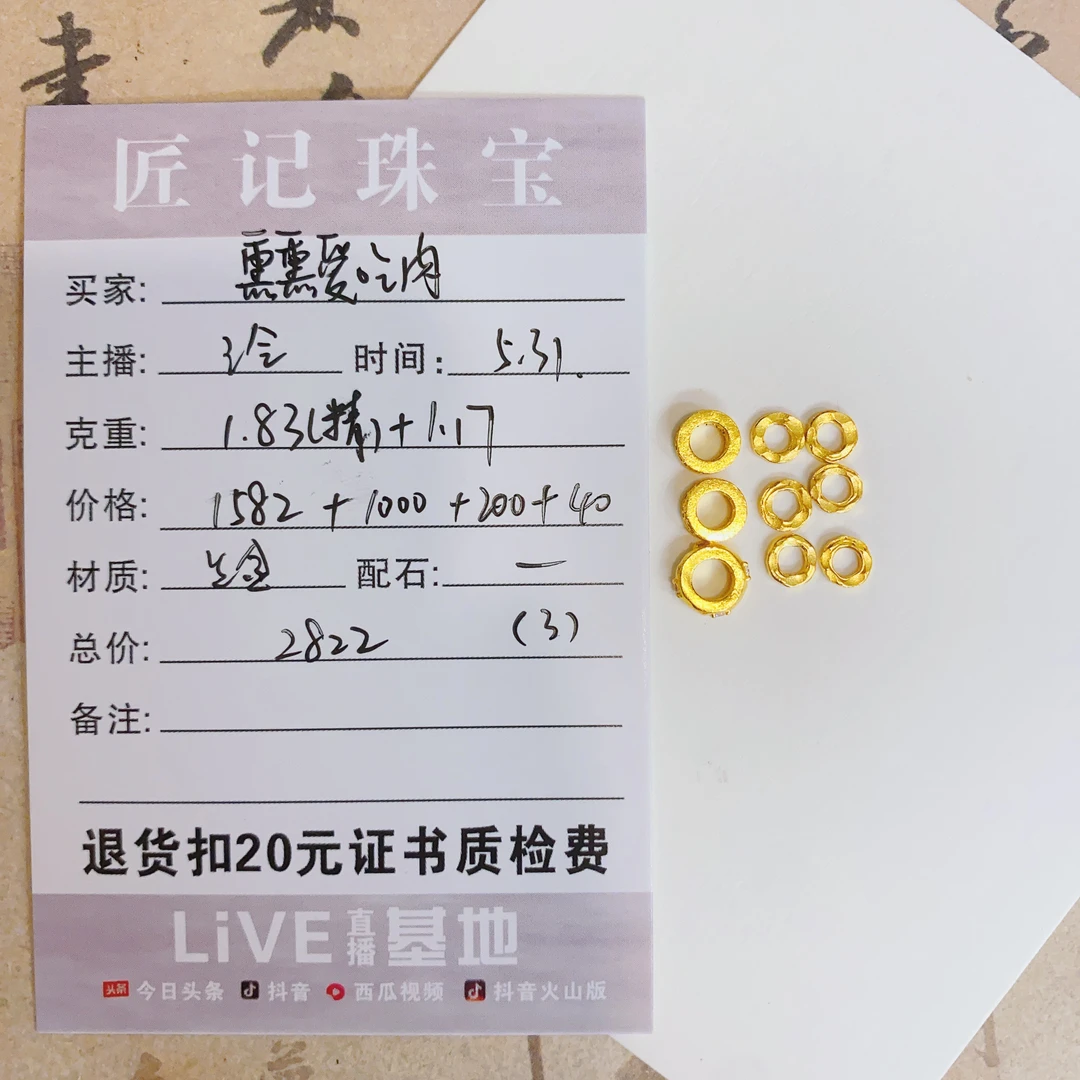 書
匠记珠宝
买家: 熏熏爱吃肉
主播: 时间: 5.31.
克重: 1.83(精)+1.17
价格: 1582+1000+200+40
材质: 配石: 一
总价: 2822 (3)
备注:
退货扣20元证书质检费
LiVE直播基地
头条 今日头条 抖音 西瓜视频 抖音火山版